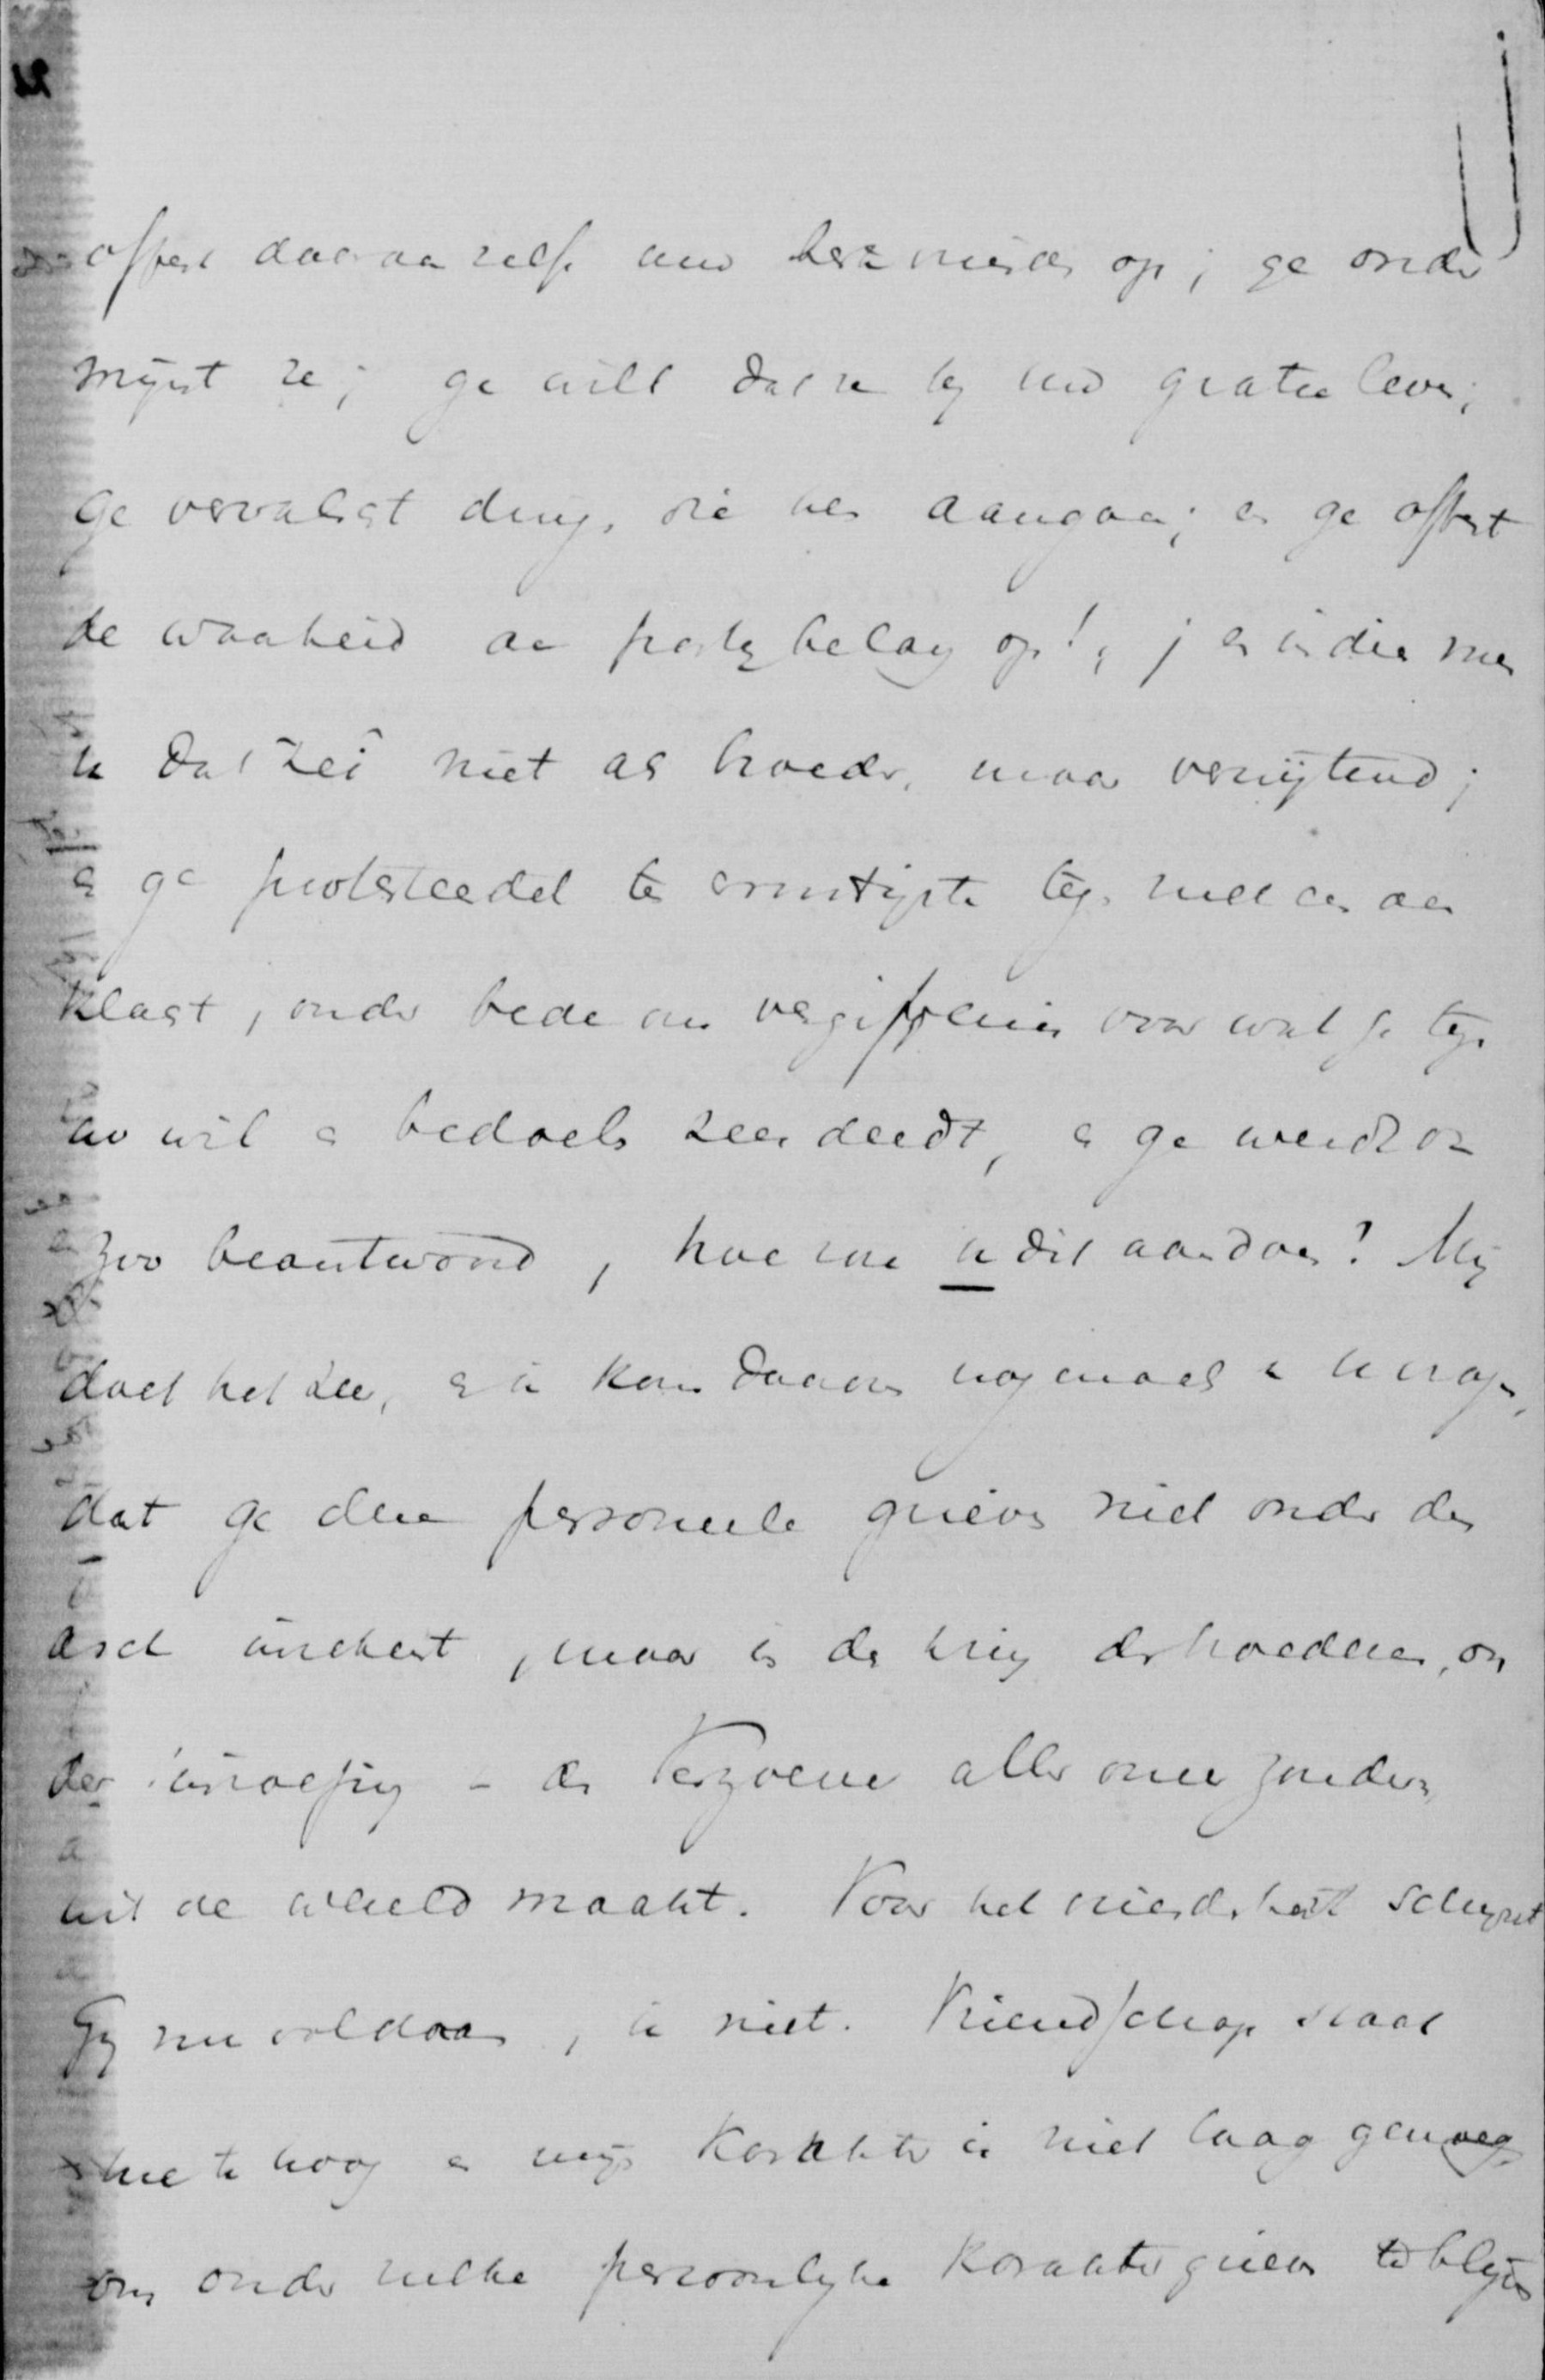 offert daaraan zelfs uw beste vrienden op; ge onder
mijnt ze; ge wilt dat ze bij uw gratie leven;
ge vervalscht dingen die hen aangaan; en ge offert
de waarheid aan partybelang op!; en indien men
u dat zei niet als broeder, maar verwijtend;
en ge protesteerdet ten ernstigste tegen zulk een aan
klacht, onder bede om vergiffenis voor wat ge tegen
uw wil en bedoelen zeer deedt, en ge werdt dan
zoo beantwoord, hoe zou u dit aandoen? Mij
doet het zeer, en ik kom daarom nogmaals u vragen,
dat ge deze personeele grieven niet onder de
asch inrekent, maar in den kring der broederen, on
der inroeping van den Verzoener aller onzer zonden,
uit de wereld maakt. Voor het vriendenhart schijnt
Gij nu voldaan, ik niet. Vriendschap staat
me te hoog en mijn karakter is niet laag genoeg,
om onder zulke persoonlijke karaktergrieven te blijven